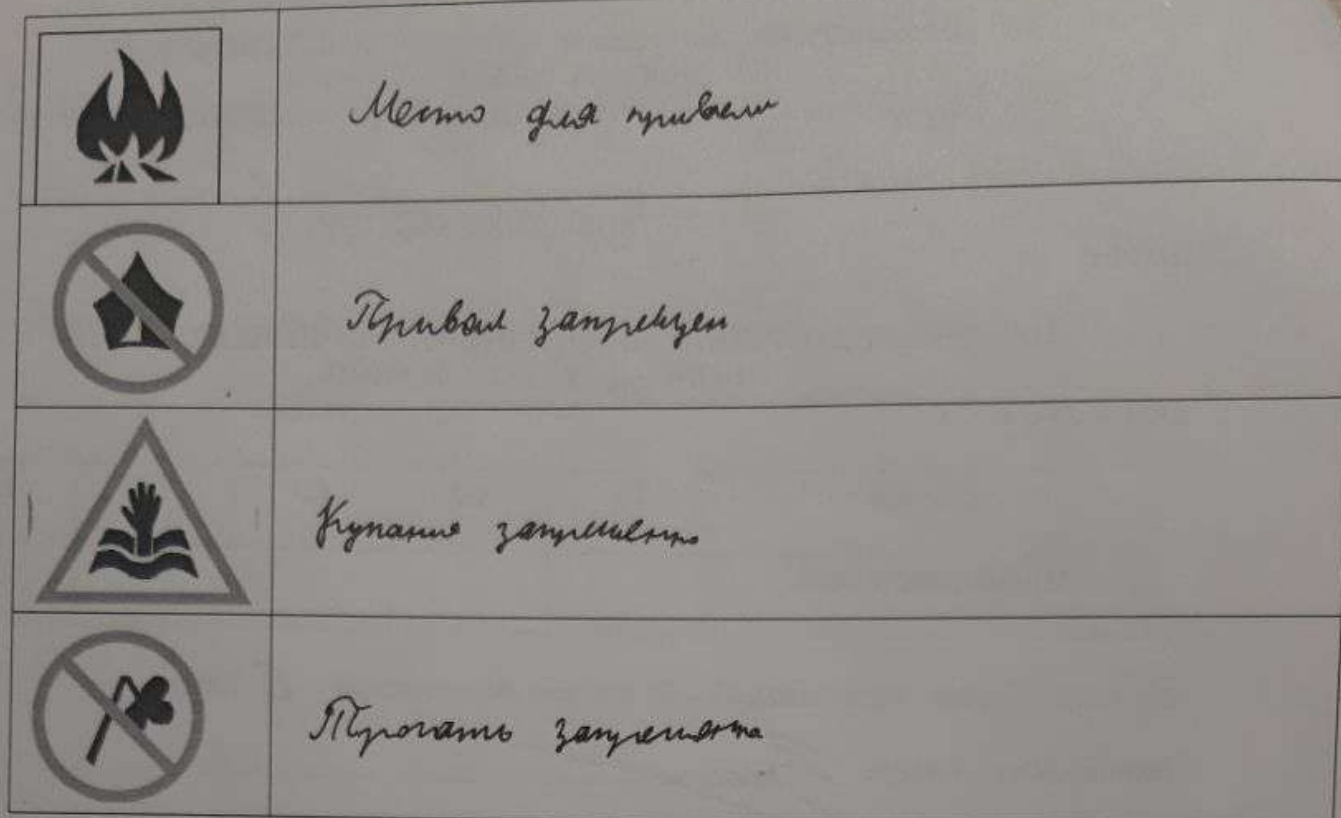 Место для привали
Привал запрещен
Купание запрешенно
Трогать запрешенна